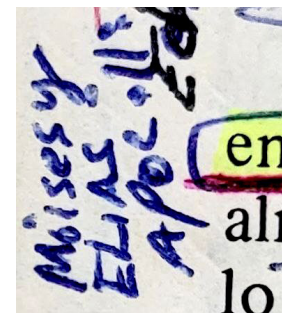 Moises y
ELIAS
APOC. 11:
en
al
lo